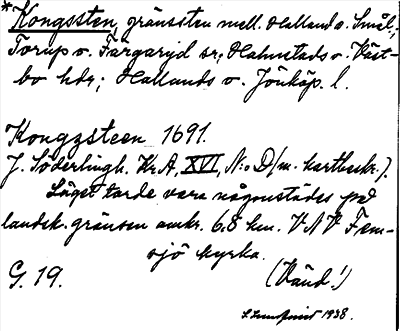 * Kongssten, gränssten mell. Halland o. Smål.;
Torup o. Färgaryd sr; Halmstads o. Väst-
bo hdr; Hallands o. Jönköp. l.
Kongzsteen 1691.
J. Söderlingh. Kr.A, XVI, N:o D/m. kartbeskr.).
Läget torde vara någonstädes på
landsk. gränsen omkr. 6,8 km. VNV Fem-
sjö kyrka.
G. 19.
(Vänd!)
1938.